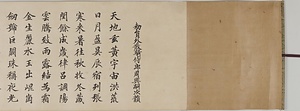 勅員外散騎侍郎周興嗣次韻
天地玄黃宇宙洪荒
日月盈昃辰宿列張
寒來暑往秋收冬藏
閏餘成歲律呂調陽
雲騰致雨露結為霜
金生麗水玉出崑崗
劒號巨闕珠稱夜光